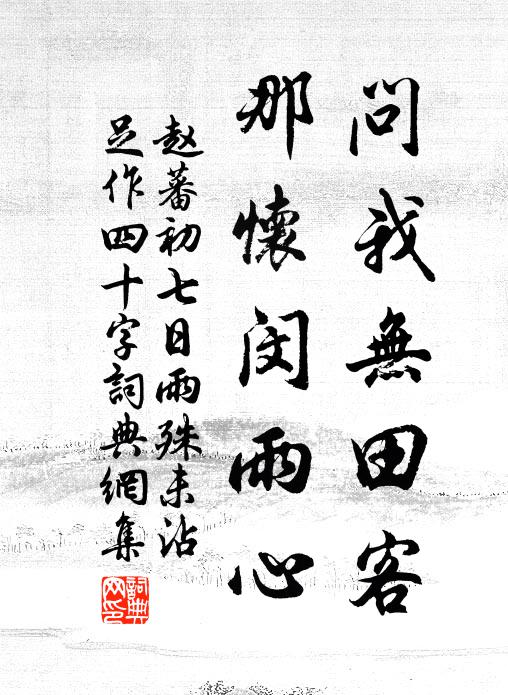 問我無田客
那懷闵雨心
赵蕃初七日雨殊未沾
足作四十字詞典網集
詞典网印